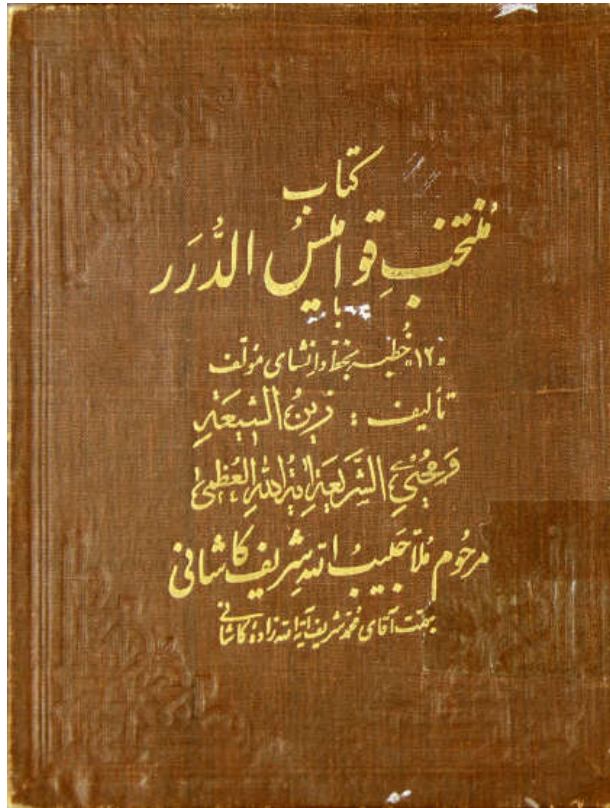 کتاب
مُنتخبِ قوامیسُ الدُّرَر
با
«۱۲» خُطبه بخط و انشای مؤلف
تألیف : زینُ الشیعةِ
وَ مُحییِ الشَّریعَةِ آیةُ اللهِ العُظمی
مرحوم مُلاّ حَبیبُ الله شریف کاشانی
بهمّت آقای محمّد شریف آیة الله زادهٔ کاشانی